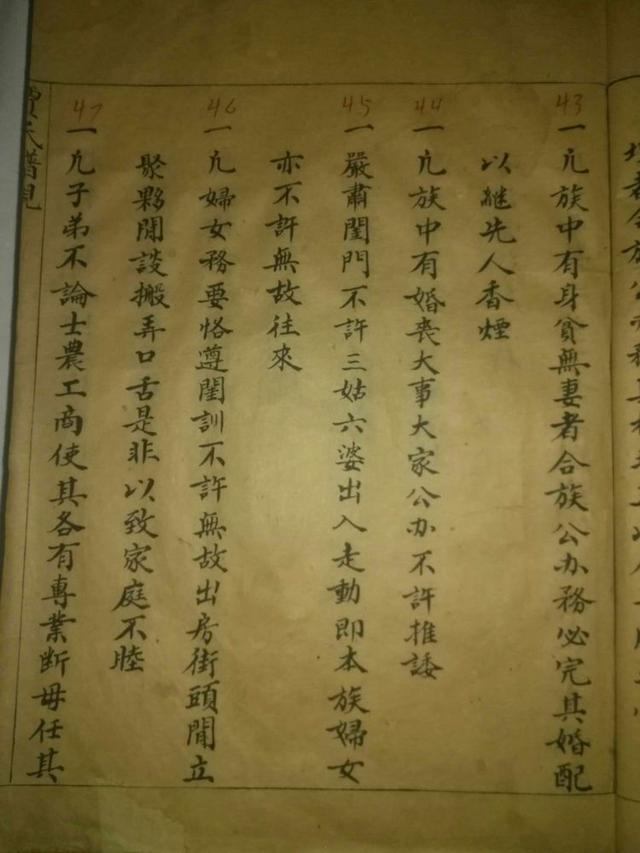 43 一凡族中有身貧無妻者合族公办務必完其婚配
以継先人香煙
44 一凡族中有婚丧大事大家公办不許推諉
45 一嚴肅閨門不許三姑六婆出入走動即本族婦女
亦不許無故往來
46 一凡婦女務要恪遵閨訓不許無故出房街頭閒立
聚夥閒談搬弄口舌是非以致家庭不睦
47 一凡子弟不論士農工商使其各有專業断毋任其
氏譜